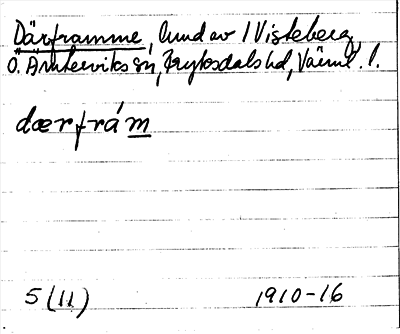 Därframme, lund av 1 Visteberg,
Ö. Ämterviks sn, Fryksdals hd, Värml. l.
dærfrám
5 (11) 1910-16